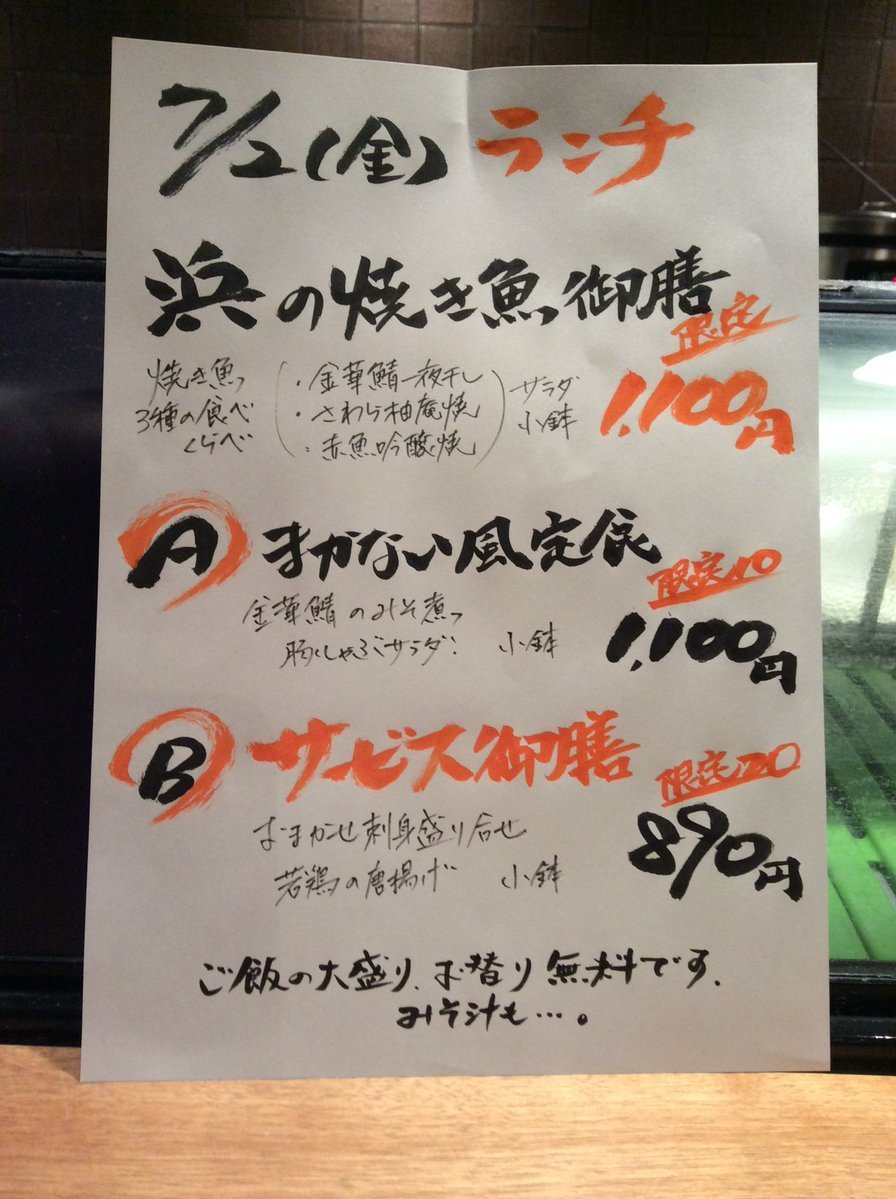 7/2(金)ランチ
浜の焼き魚御膳
限定
1,100円
焼き魚
3種の食べ
くらべ
・金華鯖一夜干し
・さわら柚庵焼
・赤魚吟醸焼
サラダ
小鉢
A まかない風定食
限定10
金華鯖のみそ煮
豚しゃぶサラダ 小鉢
1,100円
B サービス御膳
限定20
おまかせ刺身盛り合せ
若鶏の唐揚げ 小鉢
890円
ご飯の大盛り、お替り無料です、
みそ汁も…。